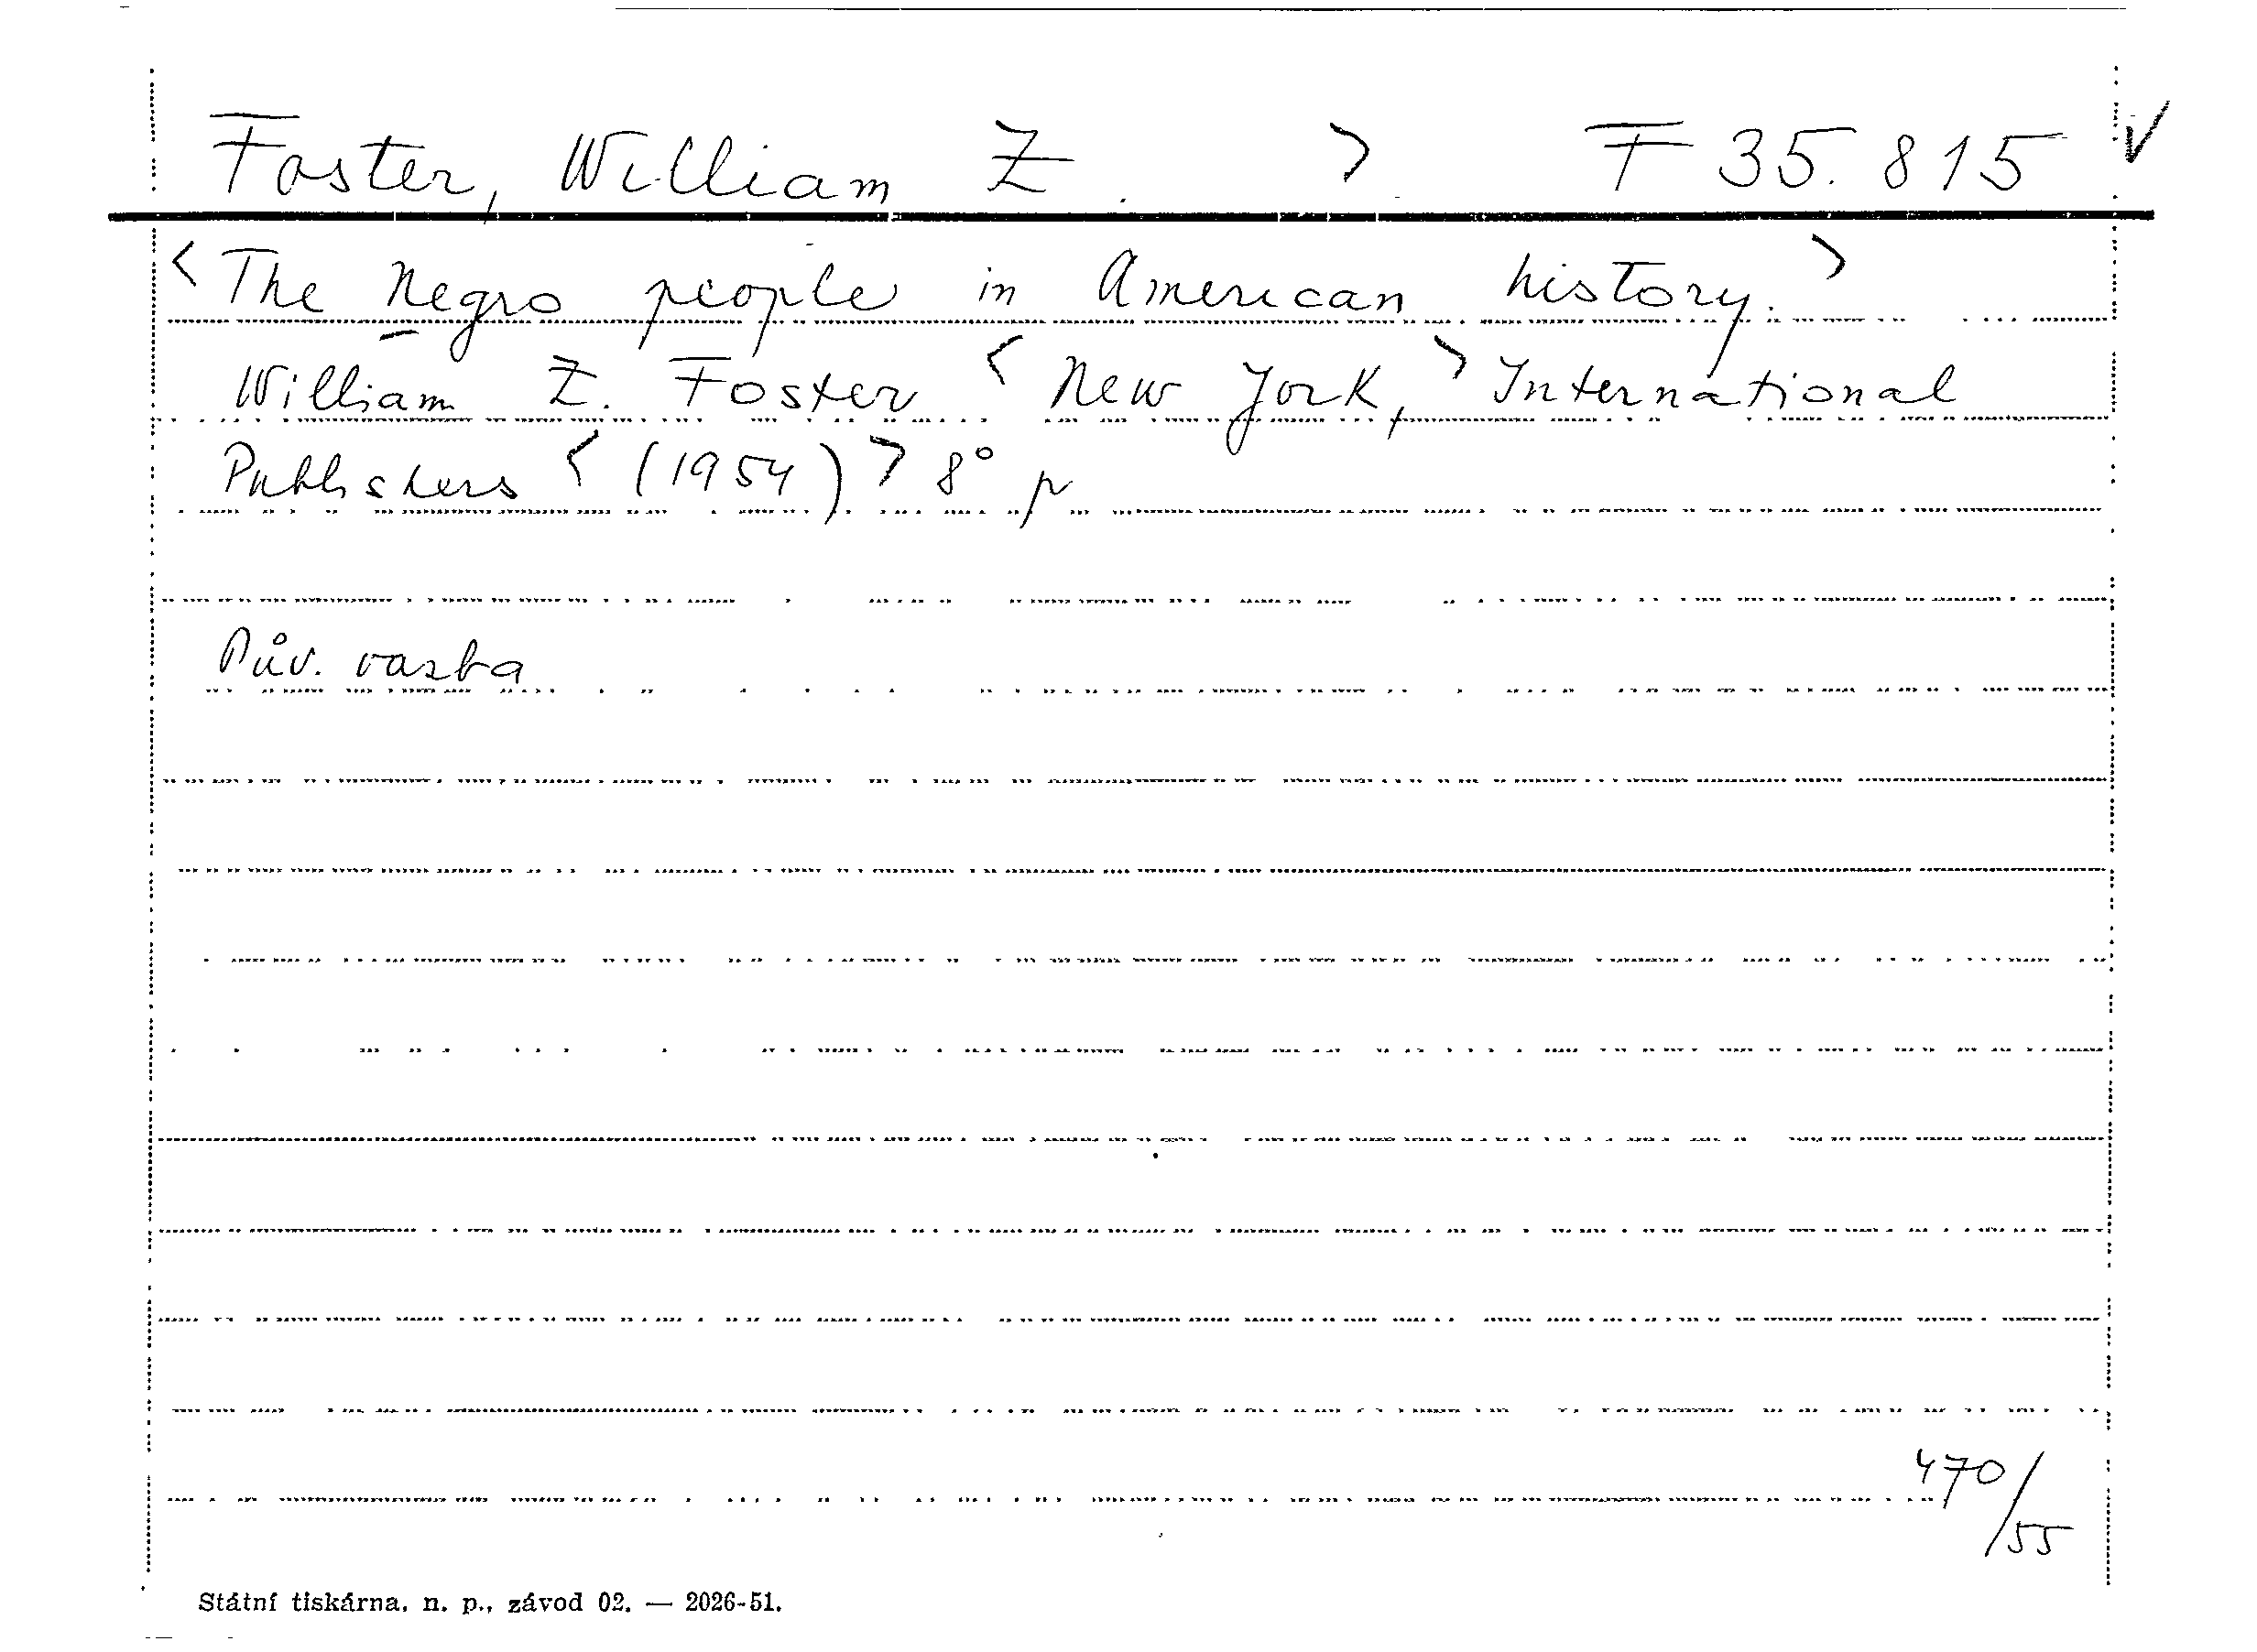 Foster, William Z. > F 35.815 √
< The Negro people in American history. >
William Z. Foster < New York, > International
Publishers < (1954) > 8° p
Pův. vazba
470/55
Státní tiskárna, n. p., závod 02. — 2026-51.